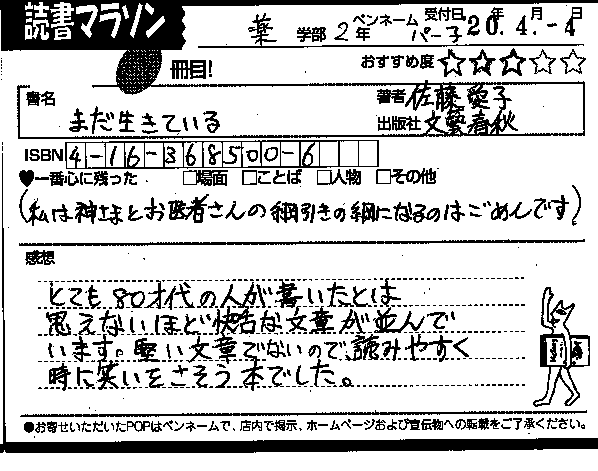 読書マラソン
薬 学部 2年 ペンネーム パー子 受付日 20年 4.月 -4日
冊目!
おすすめ度 ☆☆☆☆☆
書名 まだ生きている
著者 佐藤愛子
出版社 文藝春秋
ISBN 4-16-368500-6
♥一番心に残った □場面 □ことば □人物 □その他
(私は神さまとお医者さんの綱引きの綱になるのはごめんです)
感想
とても80才代の人が書いたとは
思えないほど快活な文章が並んで
います。堅い文章でないので、読みやすく
時に笑いをさそう本でした。
●お寄せいただいたPOPはペンネームで、店内で掲示、ホームページおよび宣伝物への転載をご了承ください。